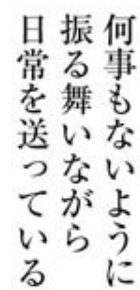 何事もないように
振る舞いながら
日常を送っている